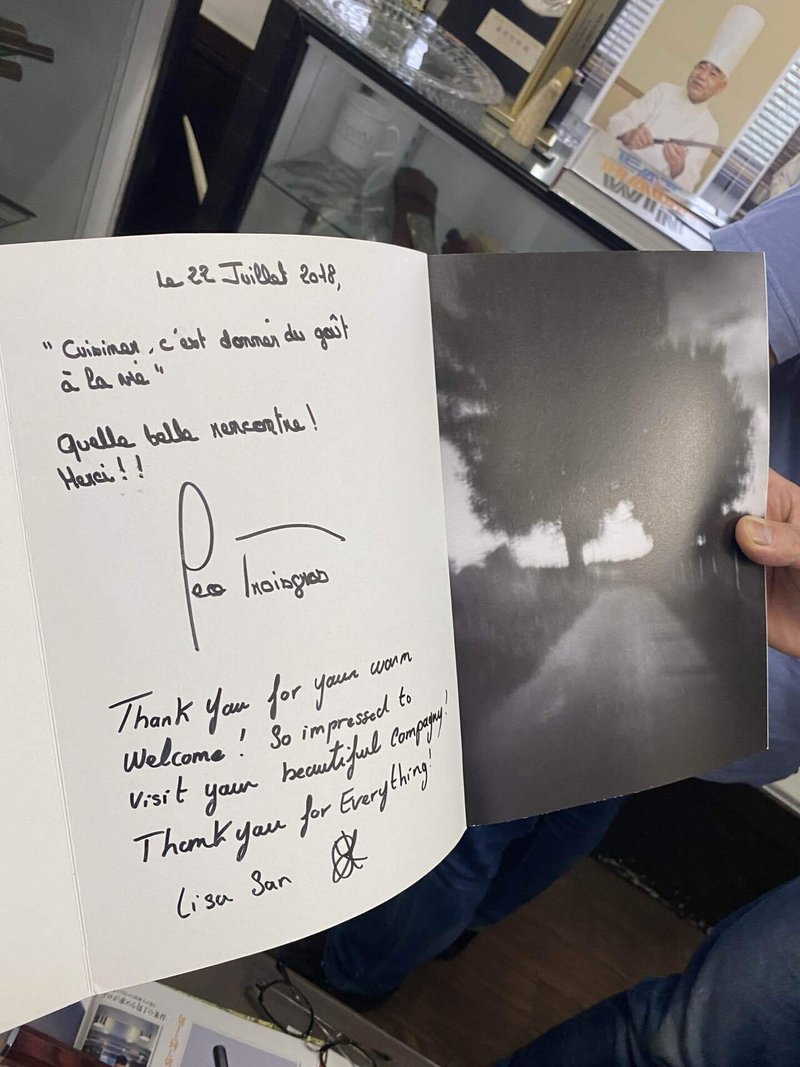 Le 22 Juillet 2018,
"Cuisiner, c'est donner du goût
à la vie"
Quelle belle rencontre!
Merci!!
Leo Troisgros
Thank you for your warm
Welcome! So impressed to
visit your beautiful compagny!
Thank you for Everything!
Lisa San